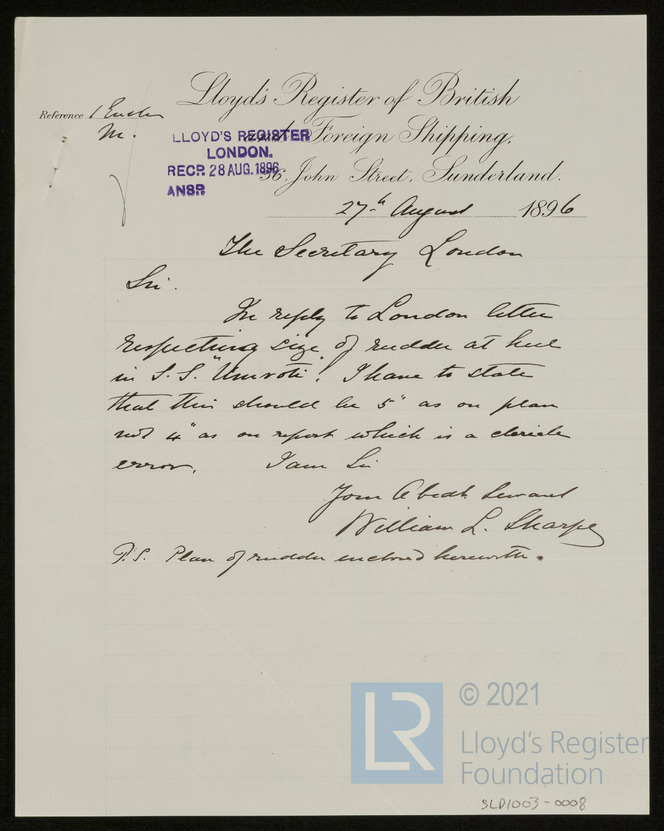 Lloyd's Register of British
Reference 1 Enclo
M.
and Foreign Shipping,
LLOYD'S REGISTER
LONDON.
RECD. 28 AUG. 1896
ANSD
56, John Street, Sunderland.
27th August 1896
The Secretary London
Sir.
In reply to London letter
respecting size of rudder at heel
in S.S. "Umvoti". I have to state
that this should be 5" as on plan
not 4" as on report which is a clericle
error. I am Sir
Your Obedt Servant
William L. Sharpe
P.S. Plan of rudder enclosed herewith.
LR
© 2021
Lloyd's Register
Foundation
SLD1003-0008